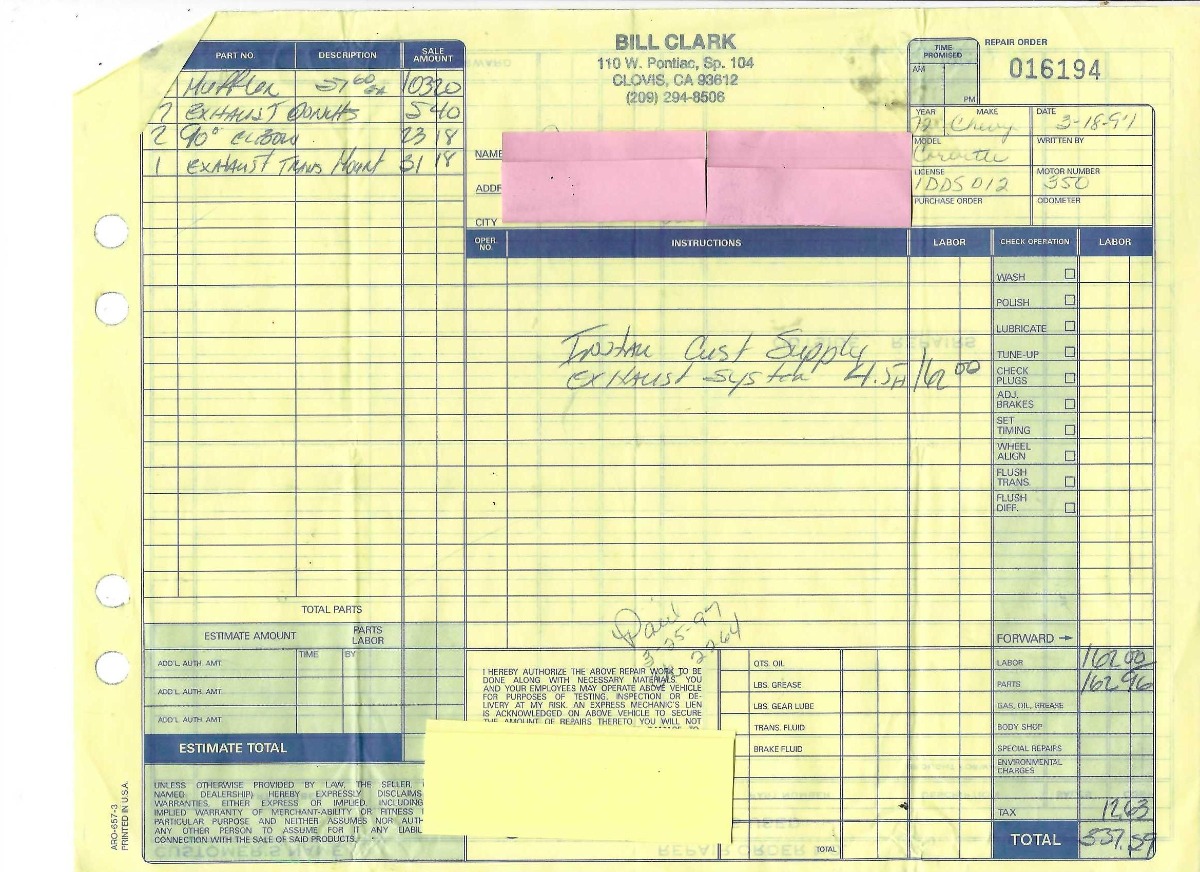 BILL CLARK
110 W. Pontiac, Sp. 104
CLOVIS, CA 93612
(209) 294-8506
TIME PROMISED
AM
PM
REPAIR ORDER
016194
PART NO. DESCRIPTION SALE AMOUNT
Muffler 57 60 EA 103 20
2 EXHAUST DONUTS 5 40
2 90° ELBOW 23 18
1 EXHAUST TRANS MOUNT 31 18
NAME
ADD
CITY
YEAR MAKE
72 Chevy
DATE
3-18-97
MODEL
Corvette
WRITTEN BY
LICENSE
1DDS012
MOTOR NUMBER
350
PURCHASE ORDER
ODOMETER
OPER. NO. INSTRUCTIONS LABOR CHECK OPERATION LABOR
WASH
POLISH
LUBRICATE
TUNE-UP
CHECK PLUGS
ADJ. BRAKES
SET TIMING
WHEEL ALIGN
FLUSH TRANS.
FLUSH DIFF.
Install Cust Supply
EXHAUST System 4.5H 162 00
Paid
3-25-97
2264
TOTAL PARTS
ESTIMATE AMOUNT PARTS LABOR
ADD'L. AUTH. AMT. TIME BY
ADD'L. AUTH. AMT.
ADD'L. AUTH. AMT.
ESTIMATE TOTAL
UNLESS OTHERWISE PROVIDED BY LAW, THE SELLER,
NAMED DEALERSHIP) HEREBY EXPRESSLY DISCLAIMS
WARRANTIES, EITHER EXPRESS OR IMPLIED, INCLUDING
IMPLIED WARRANTY OF MERCHANT-ABILITY OR FITNESS
PARTICULAR PURPOSE AND NEITHER ASSUMES NOR AUTH
ANY OTHER PERSON TO ASSUME FOR IT ANY LIABIL
CONNECTION WITH THE SALE OF SAID PRODUCTS.
I HEREBY AUTHORIZE THE ABOVE REPAIR WORK TO BE
DONE ALONG WITH NECESSARY MATERIALS. YOU
AND YOUR EMPLOYEES MAY OPERATE ABOVE VEHICLE
FOR PURPOSES OF TESTING, INSPECTION OR DE-
LIVERY AT MY RISK. AN EXPRESS MECHANIC'S LIEN
IS ACKNOWLEDGED ON ABOVE VEHICLE TO SECURE
THE AMOUNT OF REPAIRS THERETO. YOU WILL NOT
QTS. OIL
LBS. GREASE
LBS. GEAR LUBE
TRANS. FLUID
BRAKE FLUID
TOTAL
FORWARD
LABOR 162 00
PARTS 162 96
GAS, OIL, GREASE
BODY SHOP
SPECIAL REPAIRS
ENVIRONMENTAL CHARGES
TAX 12 63
TOTAL 337.59
ARO-657-3
PRINTED IN U.S.A.